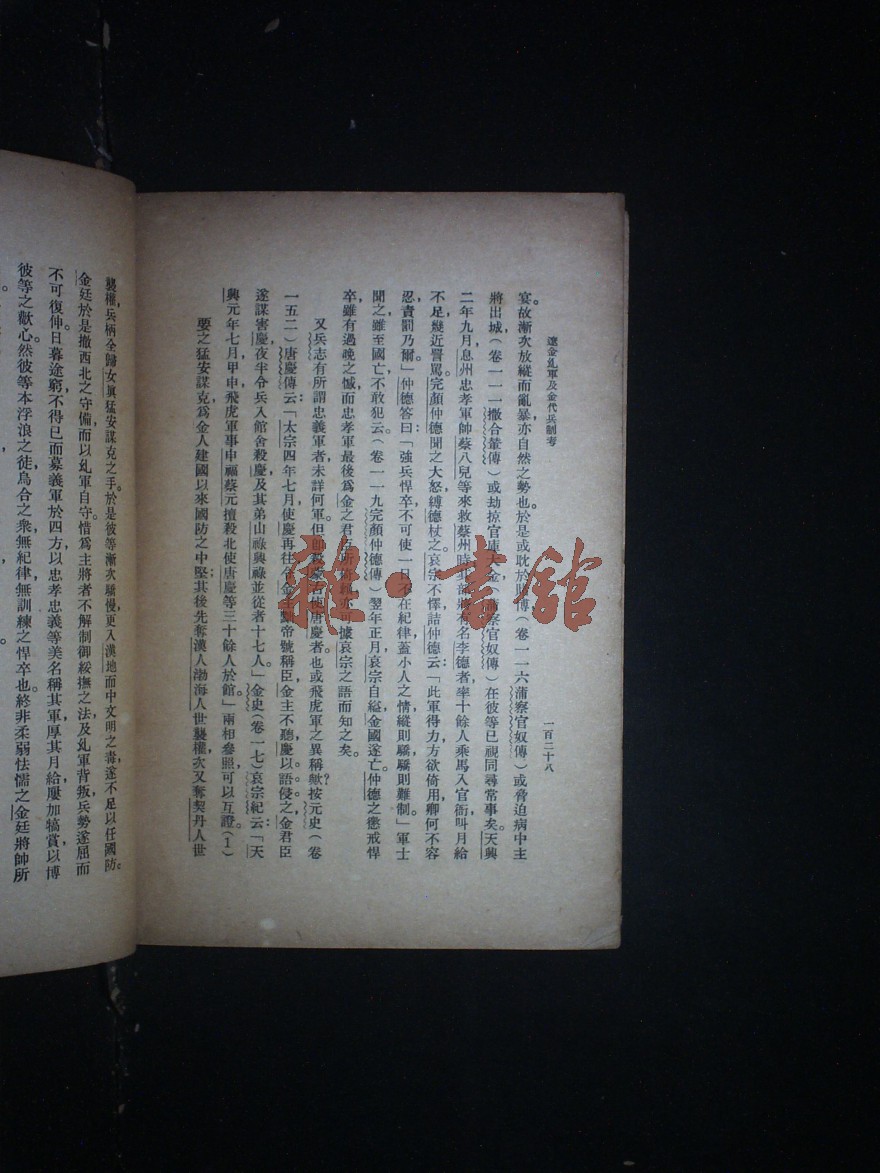 遼金乣軍及金代兵制考
一百二十八
宴。故漸次放縱而亂暴亦自然之勢也。於是或耽於賭博（卷一一六蒲察官奴傳）或脅迫病中主
將出城，（卷一一一撒合輦傳）或劫掠官庫大金（蒲察官奴傳）在彼等已視同尋常事矣。天興
二年九月，息州忠孝軍帥蔡八兒等來救蔡州，時其部將有名李德者，率十餘人乘馬入官衙，叫月給
不足，幾近詈罵。完顏仲德聞之大怒，縛德杖之。哀宗不懌，詰仲德云：「此軍得力，方欲倚用，卿何不容
忍，責罰乃爾。」仲德答曰：「強兵悍卒，不可使一日不在紀律，蓋小人之情，縱則驕，驕則難制。」軍士
聞之，雖至國亡不敢犯云。（卷一一九完顏仲德傳）翌年正月，哀宗自縊，金國遂亡。仲德之懲戒悍
卒，雖有過晚之憾，而忠孝軍最後爲金之君臣所倚賴，亦可據哀宗之語而知之矣。
又兵志有所謂忠義軍者，未詳何軍，但即殺蒙古使唐慶者也。或飛虎軍之異稱歟？按元史（卷
一五二）唐慶傳云：「太宗四年七月，使慶再往，令金主黜帝號稱臣，金主不聽，慶以語侵之，金君臣
遂謀害慶，夜半令兵入館舍殺慶，及其弟山祿興祿並從者十七人。」金史（卷一七）哀宗紀云：「天
興元年七月甲申，飛虎軍事申福蔡元擅殺北使唐慶等三十餘人於館。」兩相參照，可以互證（1）。
要之猛安謀克爲金人建國以來國防之中堅；其後先奪漢人渤海人世襲權，次又奪契丹人世
襲權，兵柄全歸女眞猛安謀克之手。於是彼等漸次驕慢，更入漢地而中文明之毒，遂不足以任國防。
金廷於是撤西北之守備，而以乣軍自守。惜爲主將者不解制御綏撫之法，及乣軍背叛，兵勢遂屈而
不可復伸。日暮途窮，不得已而募義軍於四方，以忠孝忠義等美名稱其軍，厚其月給，屢加犒賞，以博
彼等之歡心。然彼等本浮浪之徒，烏合之衆，無紀律無訓練之悍卒也。終非柔弱怯懦之金廷將帥所
雜·書館